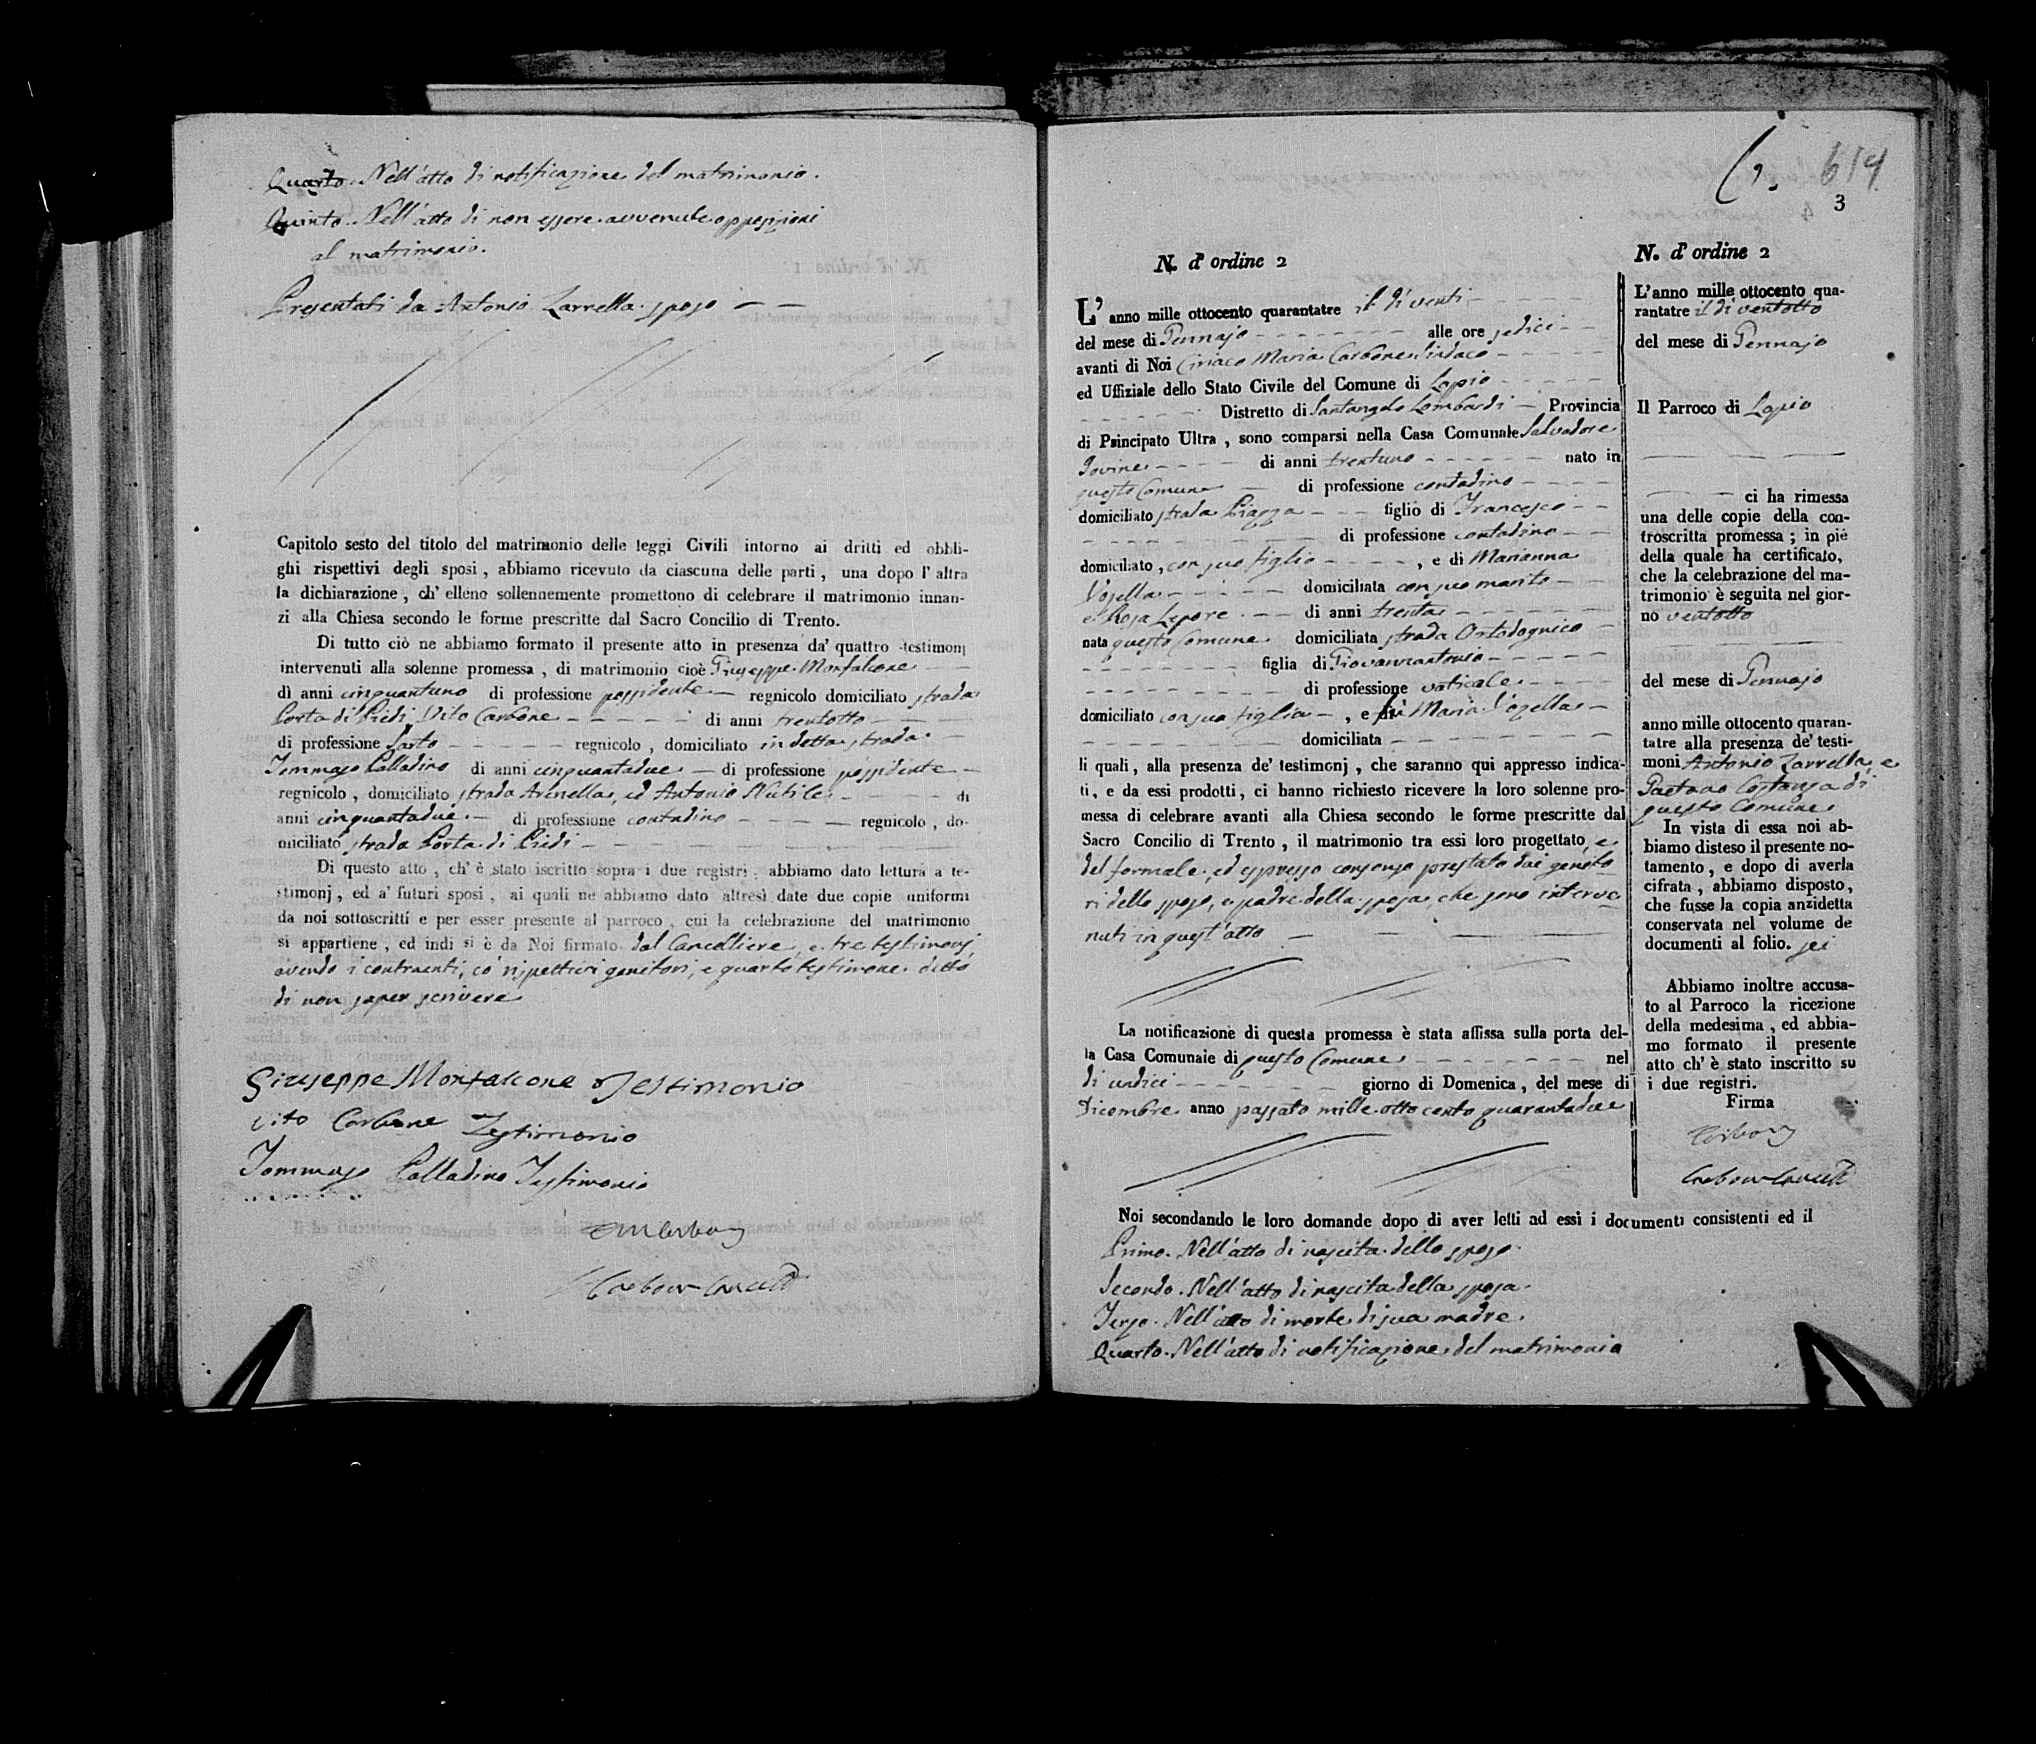 Quarto. Nell'atto di notificazione del matrimonio.
Quinto. Nell'atto di non essere avvenute opposizioni
al matrimonio.
Presentati da Antonio Zarrella sposo — —
Capitolo sesto del titolo del matrimonio delle leggi Civili intorno ai dritti ed obbli-
ghi rispettivi degli sposi, abbiamo ricevuto da ciascuna delle parti, una dopo l'altra
la dichiarazione, ch' elleno sollennemente promettono di celebrare il matrimonio innan-
zi alla Chiesa secondo le forme prescritte dal Sacro Concilio di Trento.
Di tutto ciò ne abbiamo formato il presente atto in presenza da' quattro testimonj
intervenuti alla solenne promessa, di matrimonio cioè Giuseppe Monfalcone
di anni cinquantuno di professione possidente — regnicolo domiciliato strada
Porta di Piedi Vito Carbone - - - - - di anni trentotto
di professione Sarto - - - - - regnicolo, domiciliato in detta strada
Tommaso Palladino di anni cinquantadue — di professione possidente —
regnicolo, domiciliato strada Avenella, ed Antonio Nutile - - - - - di
anni cinquantadue — di professione contadino - - - — regnicolo, do-
miciliato strada Porta di Piedi
Di questo atto, ch' è stato iscritto sopra i due registri, abbiamo dato lettura a te-
stimonj, ed a' futuri sposi, ai quali ne abbiamo dato altresì date due copie uniformi
da noi sottoscritti e per esser presente al parroco, cui la celebrazione del matrimonio
si appartiene, ed indi si è da Noi firmato dal Cancelliere, e tre testimonj
avendo i contraenti, co' rispettivi genitori, e quarto testimone detto
di non saper scrivere
Giuseppe Monfalcone Testimonio
Vito Carbone Testimonio
Tommaso Palladino Testimonio
614
3
N. d' ordine 2
L' anno mille ottocento quarantatre il dì venti
del mese di Gennajo - - - - - alle ore sedici
avanti di Noi Ciriaco Maria Carbone Sindaco
ed Uffiziale dello Stato Civile del Comune di Lapio
Distretto di Santangelo Lombardi — Provincia
di Principato Ultra, sono comparsi nella Casa Comunale Salvadore
Iovine - - - - di anni trentuno - - - - - nato in
questo Comune — di professione contadino
domiciliato strada Piazza - - - figlio di Francesco
di professione contadino
domiciliato, con suo figlio - - - - -, e di Marianna
domiciliata con suo marito
e Rosa Lepore - - - di anni trenta
nata questo Comune domiciliata strada Ortodognico
figlia di Giovannantonio
di professione vaticale
domiciliato con sua figlia —, e fù Maria
domiciliata
li quali, alla presenza de' testimonj, che saranno qui appresso indica-
ti, e da essi prodotti, ci hanno richiesto ricevere la loro solenne pro-
messa di celebrare avanti alla Chiesa secondo le forme prescritte dal
Sacro Concilio di Trento, il matrimonio tra essi loro progettato, e
del formale, ed espresso consenso prestato dai genito
ri dello sposo, e padre della sposa, che sono interve
nuti in quest'atto
La notificazione di questa promessa è stata affissa sulla porta del-
la Casa Comunale di questo Comune - - - - - nel
di undici - - - - - giorno di Domenica, del mese di
Dicembre anno passato mille ottocento quarantadue
Noi secondando le loro domande dopo di aver letti ad essi i documenti consistenti ed il
Primo. Nell'atto di nascita dello sposo
Secondo. Nell'atto di nascita della sposa
Terzo. Nell'atto di morte di sua madre
Quarto. Nell'atto di notificazione del matrimonio
N. d' ordine 2
L'anno mille ottocento qua-
rantatre il dì ventotto
del mese di Gennajo
Il Parroco di Lapio
ci ha rimessa
una delle copie della con-
troscritta promessa; in piè
della quale ha certificato,
che la celebrazione del ma-
trimonio è seguita nel gior-
no ventotto
del mese di Gennajo
anno mille ottocento quaran-
tatre alla presenza de' testi-
moni Antonio Zarrella, e
Gaetano Costanza di
questo Comune
In vista di essa noi ab-
biamo disteso il presente no-
tamento, e dopo di averla
cifrata, abbiamo disposto,
che fusse la copia anzidetta
conservata nel volume de
documenti al folio. sei
Abbiamo inoltre accusa-
to al Parroco la ricezione
della medesima, ed abbia-
mo formato il presente
atto ch' è stato inscritto su
i due registri.
Firma